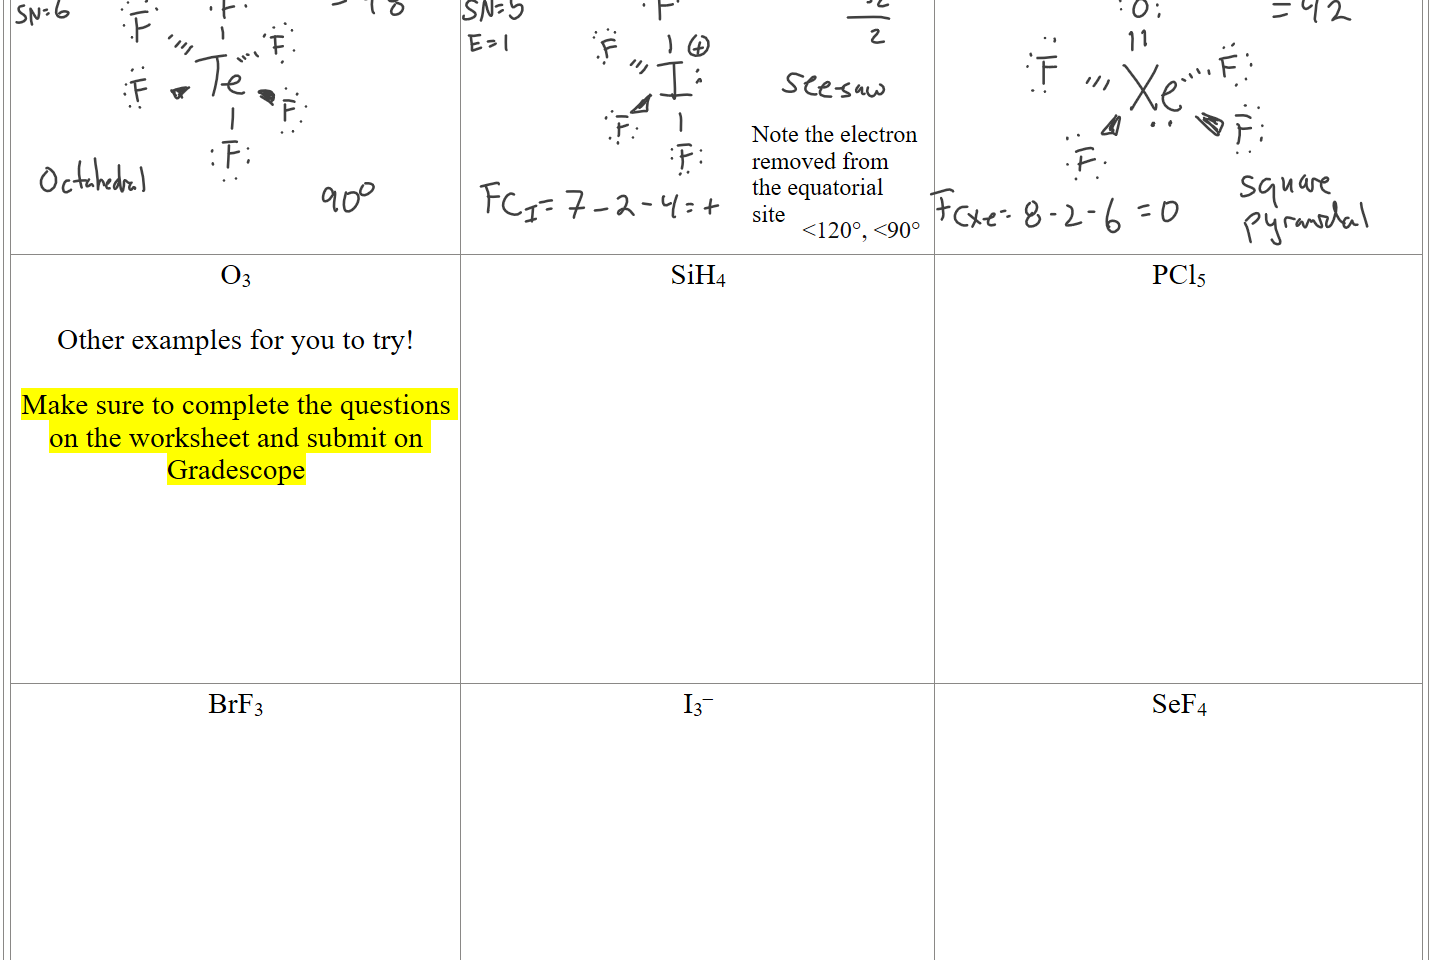 SN=6
:F:
:F:
:F:
:F:
Te
:F:
:F:
Octahedral
90°
SN=5
E=1
F
:F
⊕
I:
:F:
:F:
2
see-saw
Note the electron
removed from
the equatorial
site
<120°, <90°
FC_I = 7-2-4=+
:O:
=42
:F
F:
Xe
:F:
F:
FC_Xe = 8-2-6 =0
square
pyramidal
O₃
Other examples for you to try!
Make sure to complete the questions
on the worksheet and submit on
Gradescope
SiH₄
PCl₅
BrF₃
I₃⁻
SeF₄